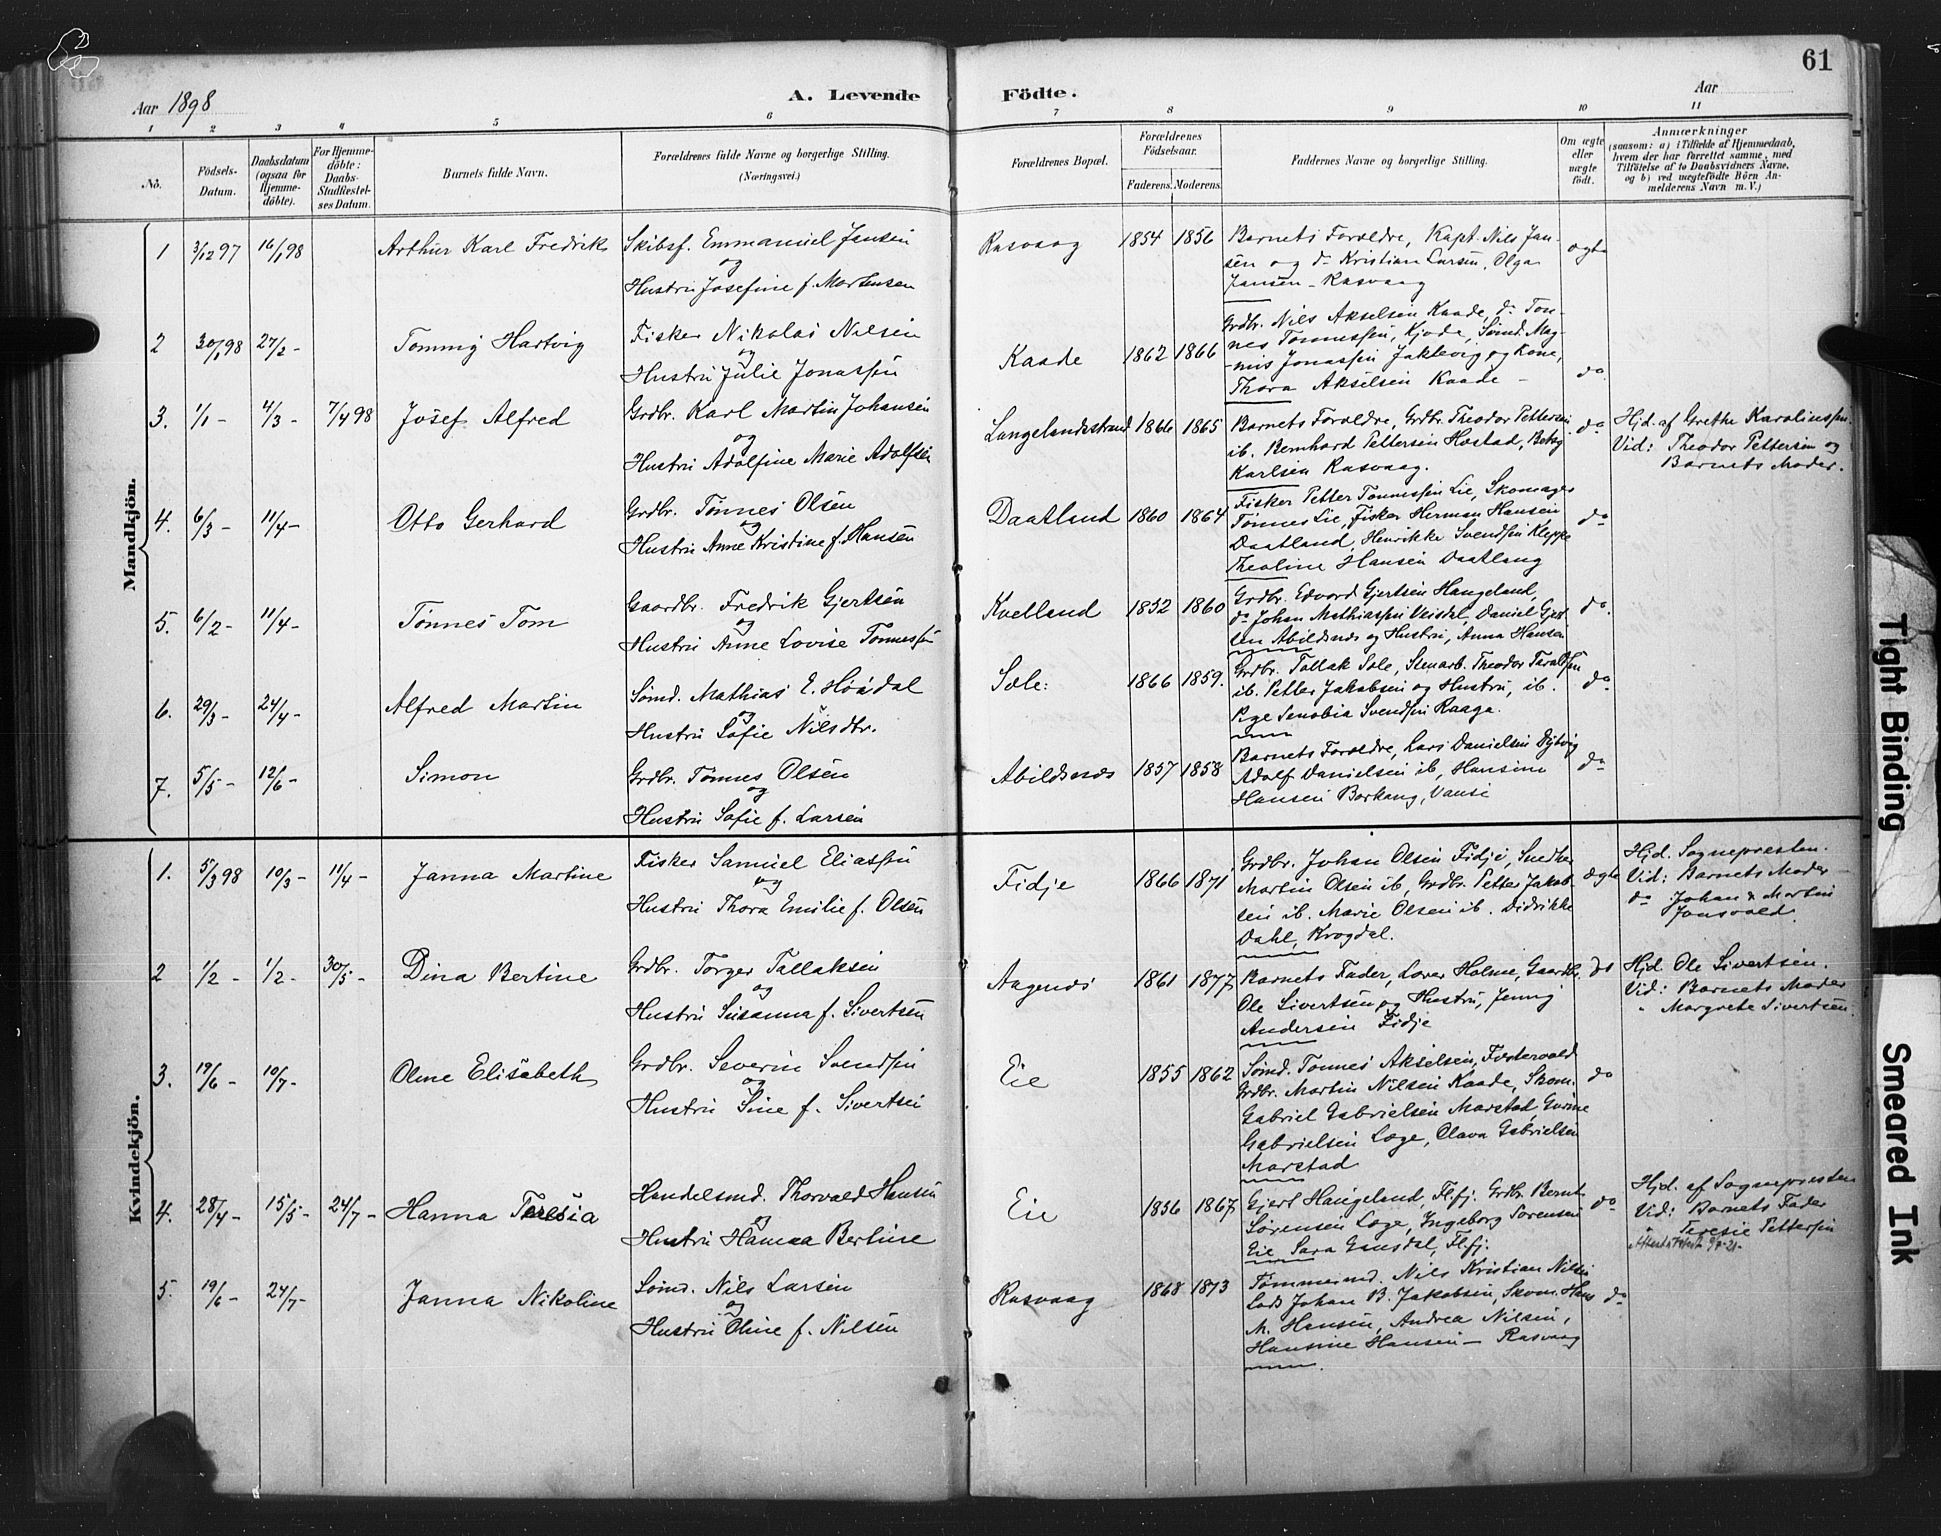 61
Aar 1898
A. Levende Födte.
Aar
1 2 3 4 5 6 7 8 9 10 11
No.
Födsels-Datum.
Daabsdatum (ogsaa for Hjemme-döbte).
For Hjemme-döbte: Daabs-Stadfæstel-ses Datum.
Barnets fulde Navn.
Forældrenes fulde Navne og borgerlige Stilling.
(Næringsvei.)
Forældrenes Bopæl.
Forældrenes Födselsaar.
Faderens. Moderens.
Faddernes Navne og borgerlige Stilling.
Om ægte eller uægte födt.
Anmærkninger
(saasom: a) i Tilfælde af Hjemmedaab,
hvem der har forrettet samme, med
Tilföielse af to Daabsvidners Navne,
og b) ved uægtefödte Börn An-
melderens Navn m. V.)
Mandkjön.
1 3/12 97 16/1 98 Arthur Karl Fredrik
Skibsf. Emmanuel Jensen
og
Hustru Josefine f. Mortensen
Rasvaag 1854 1856
Barnets Foræeldre, Kapt. Nils Jan-
sen og do Kristian Larsen, Olga
Jansen - Rasvaag
ægte
2 30/1 98 27/2 - Tommy Hartvig
Fisker Nikolai Nilsen
og
Hustru Julie Jonassen
Kaade 1862 1866
Grdbr. Nils Akselsen Kaade, do Ton-
nes Tønnessen, Kjøde, Sømd. Mag-
nus Jonassen Jaklevig og Kone,
Thora Akselsen Kaade -
do
3. 1/1 - 4/3 - 7/4 98 Josef Alfred
Grdbr. Karl Martin Johansen
og
Hustru Adolfine Marie Adolfsen
Langelandsstrand 1866 1865
Barnets Forældre, Grdbr. Theodor Pettersen
ib. Bernhard Pettersen Hostad, Betsy
Karlsen Rasvaag.
do
Hjd. af Grethe Karolinessen.
Vid: Theodor Pettersen og
Barnets Moder.
4. 6/3 - 11/4 - Otto Gerhard
Grdbr. Tønnes Olsen
og
Hustru Anne Kristine f. Hansen
Daatland 1860 1864
Fisker Petter Tønnessen Lie, Skomager
Tønnes Lie, Fisker Herman Hansen
Daatland, Henrikke Svendsen Kleppe
Theoline Hansen Daatland
do
5. 6/2 - 11/4 - Tønnes Tom
Gaardbr. Fredrik Gjertsen
og
Hustru Anne Lovise Tønnessen
Kvelland 1852 1860
Grdbr. Edvard Gjertsen Haugeland,
do Johan Mathiassen Veisdal, Daniel Gjert-
sen Abildsnes og Hustru, Anna Hansen
do.
6. 29/3 - 24/4 - Alfred Martin
Sømd. Mathias E. Høisdal
og
Hustru Sofie Nilsdtr.
Sole: 1866 1859.
Grdbr. Tallak Sole, Stenarb. Theodor Taraldsen
ib. Petter Jakobsen og Hustru, ib.
Pige Senobia Svendsen Raaga.
do
7. 5/5 - 12/6 - Simon
Grdbr. Tønnes Olsen
og
Hustru Sofie f. Larsen
Abildsnes 1857 1858
Barnets Forældre, Lars Danielsen Dybvig
Adolf Danielsen ib, Hansine
Hansen Borkaug, Vanse
do
Kvindekjön.
1. 5/3 98 10/3 - 11/4 - Janna Martine
Fisker Samuel Eliassen
og
Hustru Thora Emilie f. Olsen
Fidje 1866 1871
Grdbr. Johan Olsen Fidje, Snedker
Martin Olsen ib, Grdbr. Petter Jakob-
sen ib. Marie Olsen ib. Didrikke
Dahl, Krogdal.
ægte
Hjd. Sognepresten.
Vid: Barnets Moder -
do Johan & Martin
2 1/2 - 1/2 - 30/5 - Dina Bertine
Grdbr. Torger Tallaksen
og
Hustru Susanna f. Sivertsen
Aagenes 1861 1877
Barnets Fader, Lærer Holme, Gaardbr.
Ole Sivertsen og Hustru, Jenny
Andersen Fidje
do
Hjd. Ole Sivertsen.
Vid: Barnets Moder
" Margrete Sivertsen.
3. 19/6 - 10/7 - Olme Elisabeth
Grdbr. Severin Svendsen
og
Hustru Sine f. Sivertsen
Eie 1855 1862
Sømd. Tønnes Akselsen, Fostervold
Grdbr. Martin Nilsen Kaade, Skom.
Gabriel Gabrielsen Marstad, Gurine
Gabrielsen Loge, Olava Gabrielsen
Marstad
do
4. 28/4 - 15/5 - 24/7 - Hanna Teresia
Handelsmd. Thorvald Hansen
og
Hustru Hanna Bertine
Eie 1856 1867
Gjert Haugeland, Flfj. Grdbr. Bernt
Sørensen Loge, Ingeborg Sørensen
Eie Sara Gausdal, Flfj.
do
Hjd. af Sognepresten
Vid: Barnets Fader
" Teresie Pettersen
5. 19/6 - 24/7 - Janna Nikoline
Sømd. Nils Larsen
og
Hustru Oline f. Nilsen
Rasvaag 1868 1873
Tømmermd. Nils Kristian Nilsen
Lods Johan B. Jakobsen, Skom. Hans
M. Hansen, Andrea Nilsen,
Hansine Hansen - Rasvaag
do
Tight Binding
Smeared Ink